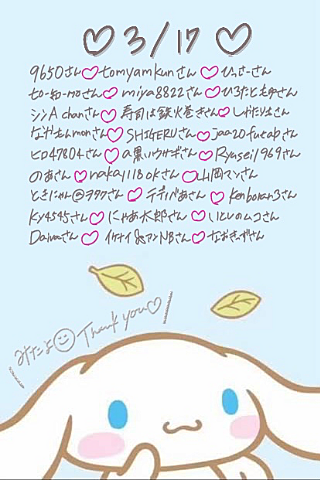 ♡ 3/17 ♡
9650さん♡tomyamkunさん♡ひっさーさん
miya8822さん♡ひろたともゆさん
シンA chanさん♡寿司は鉄火巻きさん♡しゃたりえさん
なかもんmonさん♡SHIGERUさん♡jaa20futabさん
ヒロ47804さん♡a黒いウサギさん♡Ryusei1969さん
のあさん♡nakajii8okさん♡山岡マンさん
ときにゃん@ヲタクさん♡テディベあさん♡kenboran3さん
Ky4545さん♡にゃあ太郎さん♡いとしのムコさん
Daiwaさん♡イケナイ&マンNBさん♡なおきっずさん
みたよ Thank you♡